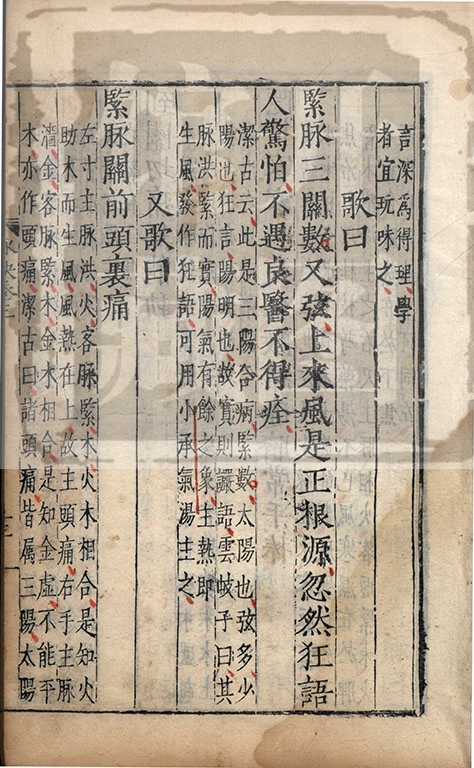 言深爲得理學
者宜玩味之
歌曰
緊脉三關數又弦上來風是正根源忽然狂語
人驚怕不遇良醫不得痊
潔古云此是三陽合病緊數太陽也弦多少
陽也狂言陽明也故實則讝語雲岐子曰其
脉洪緊而實陽氣有餘之象主熱即
生風發作狂語可用小承氣湯主之
又歌曰
緊脉關前頭裏痛
左寸主脉洪火客脉緊木火木相合是知火
助木而生風風熱在上故主頭痛右手主脉
濇金客脉緊木金木相合是知金虛不能平
木亦作頭痛潔古曰諸頭痛皆属三陽太陽